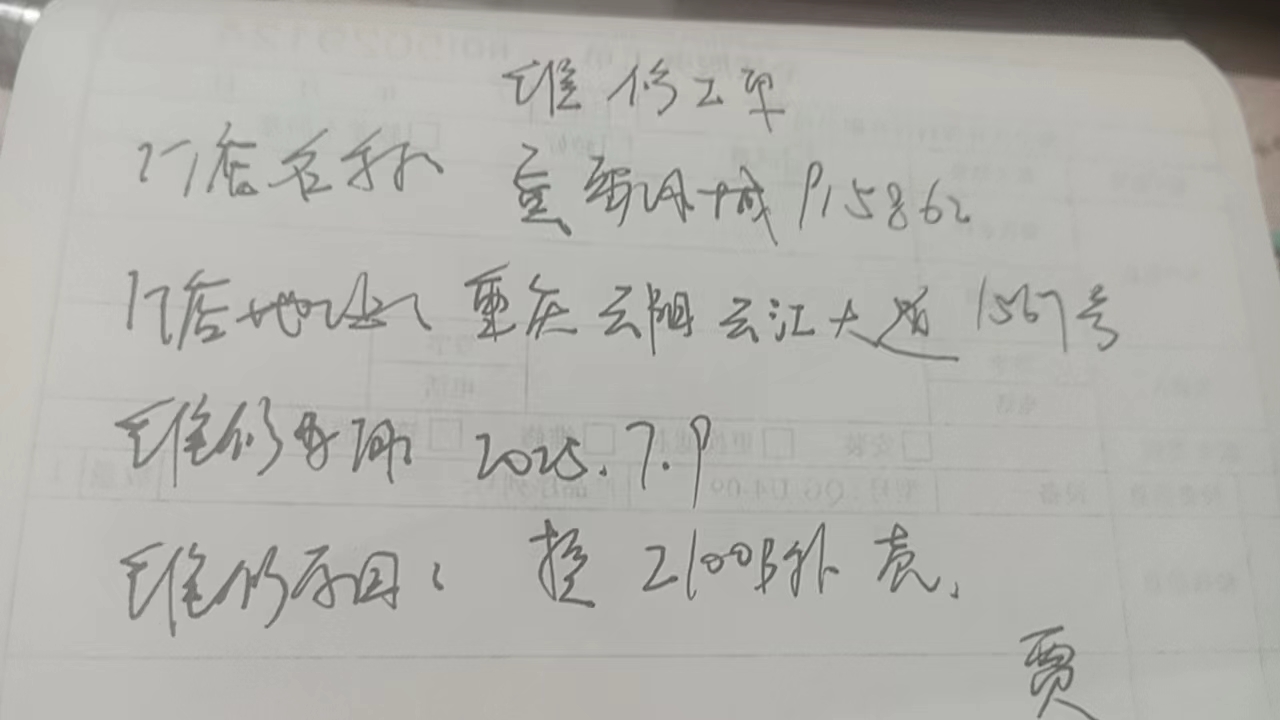 维修工单
门店名称 重 城 P15862
门店地址 重庆云阳云江大道1567号
维修时间: 2025.7.9
维修原因: 换 2100B外壳.
贾